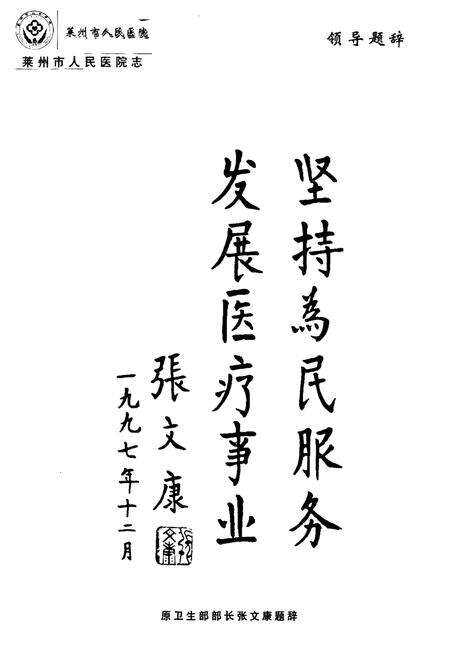 莱州市人民医院
莱州市人民医院志
领导题辞
坚持為民服务
发展医疗事业
張文康
一九九七年十二月
原卫生部部长张文康题辞